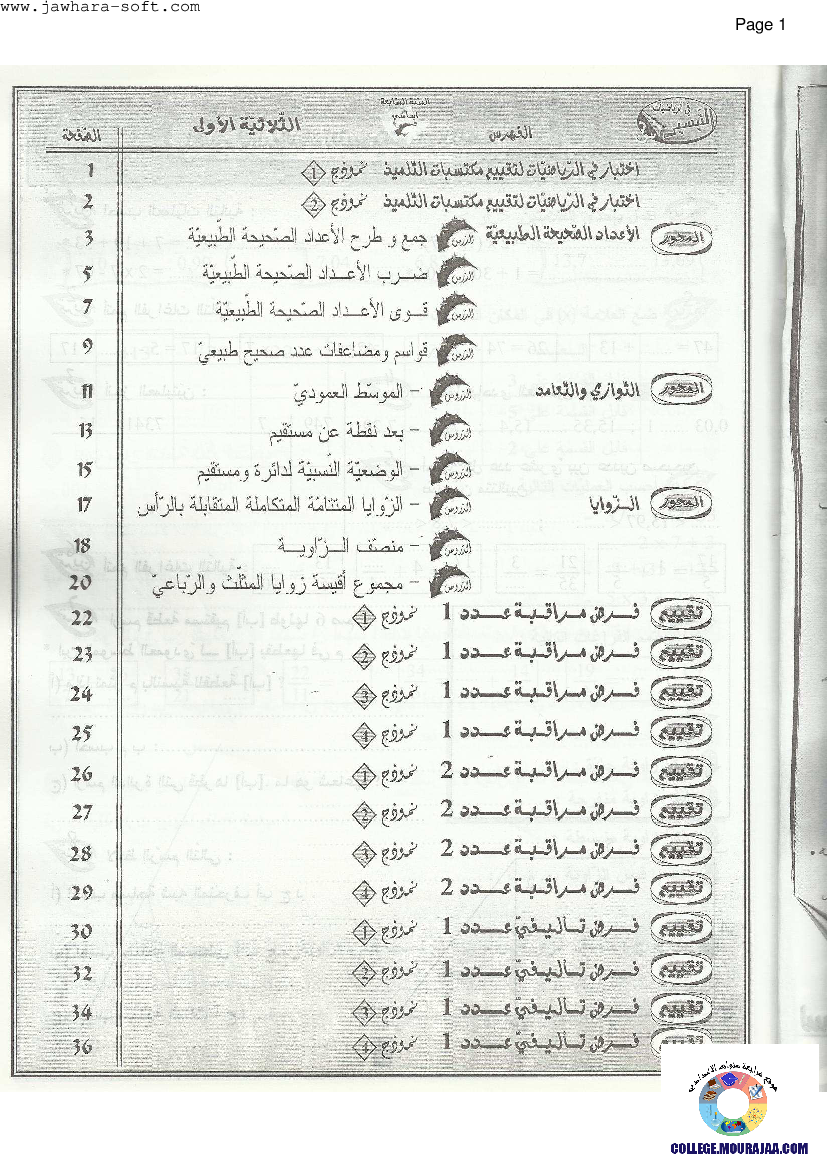 www.jawhara-soft.com
Page 1
في رياضيات
السنة السابعة
أساسي
الفهرس
الثّلاثيّة الأولى
الصّفحة
اختبار في الرّياضيّات لتقييم مكتسبات التّلميذ نموذج 1 1
اختبار في الرّياضيّات لتقييم مكتسبات التّلميذ نموذج 2 2
المحور الأعداد الصّحيحة الطّبيعيّة الدّرس جمع و طرح الأعداد الصّحيحة الطّبيعيّة 3
الدّرس ضــرب الأعــداد الصّحيحة الطّبيعيّة 5
الدّرس قــوى الأعــداد الصّحيحة الطّبيعيّة 7
الدّرس قواسم ومضاعفات عدد صحيح طبيعيّ 9
المحور التّوازي والتّعامد الدّروس – الموسّط العموديّ 11
الدّروس – بعد نقطة عن مستقيم 13
الدّروس – الوضعيّة النّسبيّة لدائرة ومستقيم 15
المحور الــزّوايا الدّروس – الزّوايا المتتامّة المتكاملة المتقابلة بالرّأس 17
الدّروس – منصّف الــزّاويــة 18
الدّروس – مجموع أقيسة زوايا المثلّث والرّباعيّ 20
تقييم فــرض مــراقـبـة عــدد 1 نموذج 1 22
تقييم فــرض مــراقـبـة عــدد 1 نموذج 2 23
تقييم فــرض مــراقـبـة عــدد 1 نموذج 3 24
تقييم فــرض مــراقـبـة عــدد 1 نموذج 4 25
تقييم فــرض مــراقـبـة عــدد 2 نموذج 1 26
تقييم فــرض مــراقـبـة عــدد 2 نموذج 2 27
تقييم فــرض مــراقـبـة عــدد 2 نموذج 3 28
تقييم فــرض مــراقـبـة عــدد 2 نموذج 4 29
تقييم فــرض تــأليـفـيّ عــدد 1 نموذج 1 30
تقييم فــرض تــأليـفـيّ عــدد 1 نموذج 2 32
تقييم فــرض تــأليـفـيّ عــدد 1 نموذج 3 34
تقييم فــرض تــأليـفـيّ عــدد 1 نموذج 4 36
COLLEGE.MOURAJAA.COM